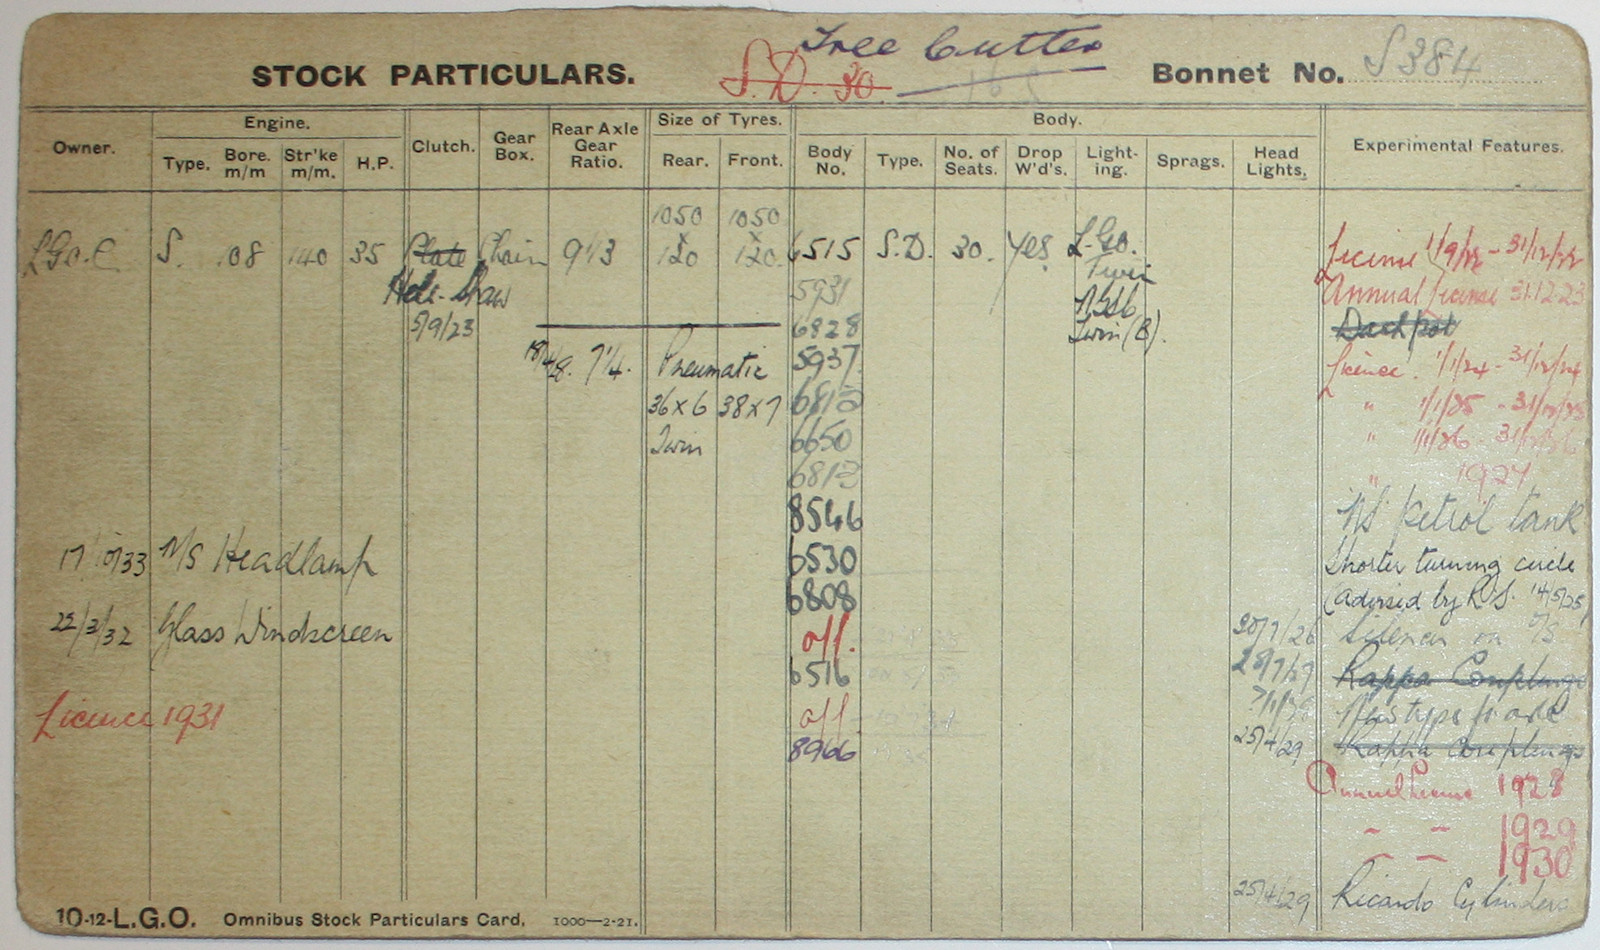 Tree Cutter
STOCK PARTICULARS.
S.D. 30.
Bonnet No. S384
Owner.
Engine.
Type.
Bore. m/m
Str'ke m/m.
H.P.
Clutch.
Gear Box.
Rear Axle Gear Ratio.
Size of Tyres.
Rear.
Front.
Body.
Body No.
Type.
No. of Seats.
Drop W'd's.
Light-ing.
Sprags.
Head Lights.
Experimental Features.
1050 x 120
1050 x 120.
L.G.O.C. S. 108 140 35 Plate Chain 9⅓ 6515 S.D. 30. Yes L.G.O. Twin
Licence 1/9/22 - 31/12/22
Hele-Shaw 5931
Annual licence 31.12.23
5/9/23 6828 Twin (B).
Dashpot
7¼. Pneumatic 5937
Licence. 1/1/24 - 31/12/24
36 x 6 38 x 7
" 1/1/25 - 31/12/25
Twin 6650
" 1/1/26 - 31/12/26
6813
" 1927
8546
N/S petrol tank
17/10/33 N/S Headlamp 6530
Shorter turning circle
6808
(advised by R.S. 14/5/25)
22/3/32 Glass Windscreen off.
Silencer on O/S
6516
25/7/27 Kappa Couplings
Licence 1931 off
8966
25/4/29 Kappa Couplings
Annual Licence 1928
" " 1929
" " 1930
25/4/29 Ricardo Cylinders
10-12-L.G.O. Omnibus Stock Particulars Card. 1000—2-21.